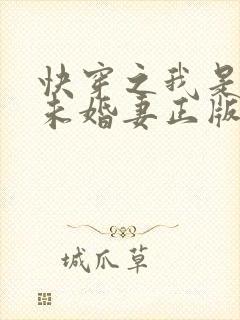 快穿之我是
未婚妻正版
城爪草